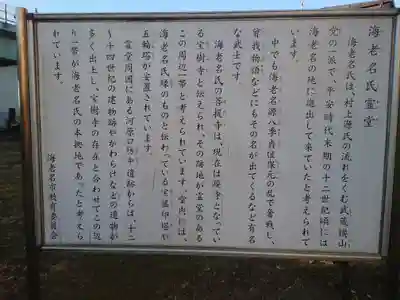 海老名氏霊堂
海老名氏は、村上源氏の流れをくむ武蔵横山
党の一派で、平安時代末期の十二世紀頃には
海老名の地に進出して来ていたと考えられて
います。
中でも海老名源八季貞は保元の乱で奮戦し、
曽我物語などにもその名が出てくるなど有名
な武士です。
海老名氏の菩提寺は、現在は廃寺となってい
る宝樹寺と伝えられ、その跡地が霊堂のある
この周辺一帯と考えられています。堂内には、
海老名氏縁のものと伝わっている宝篋印塔や
五輪塔が安置されています。
霊堂周囲にある河原口坊中遺跡からは、十二
～十四世紀の建物跡やかわらけなどの遺物が
多く出土し、宝樹寺の存在と合わせてこの辺
り一帯が海老名氏の本拠地であったと考えら
れています。
海老名市教育委員会